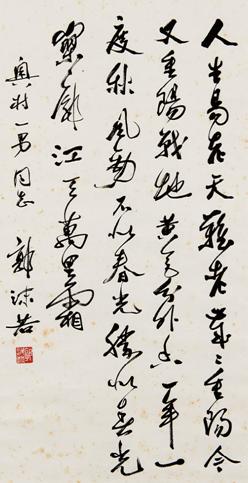 人生易老天難老歲〻重陽今
又重陽戰地黃花分外香一年一
度秋風勁不似春光勝似春光
寥廓江天萬里霜
奥村一男同志 郭沫若